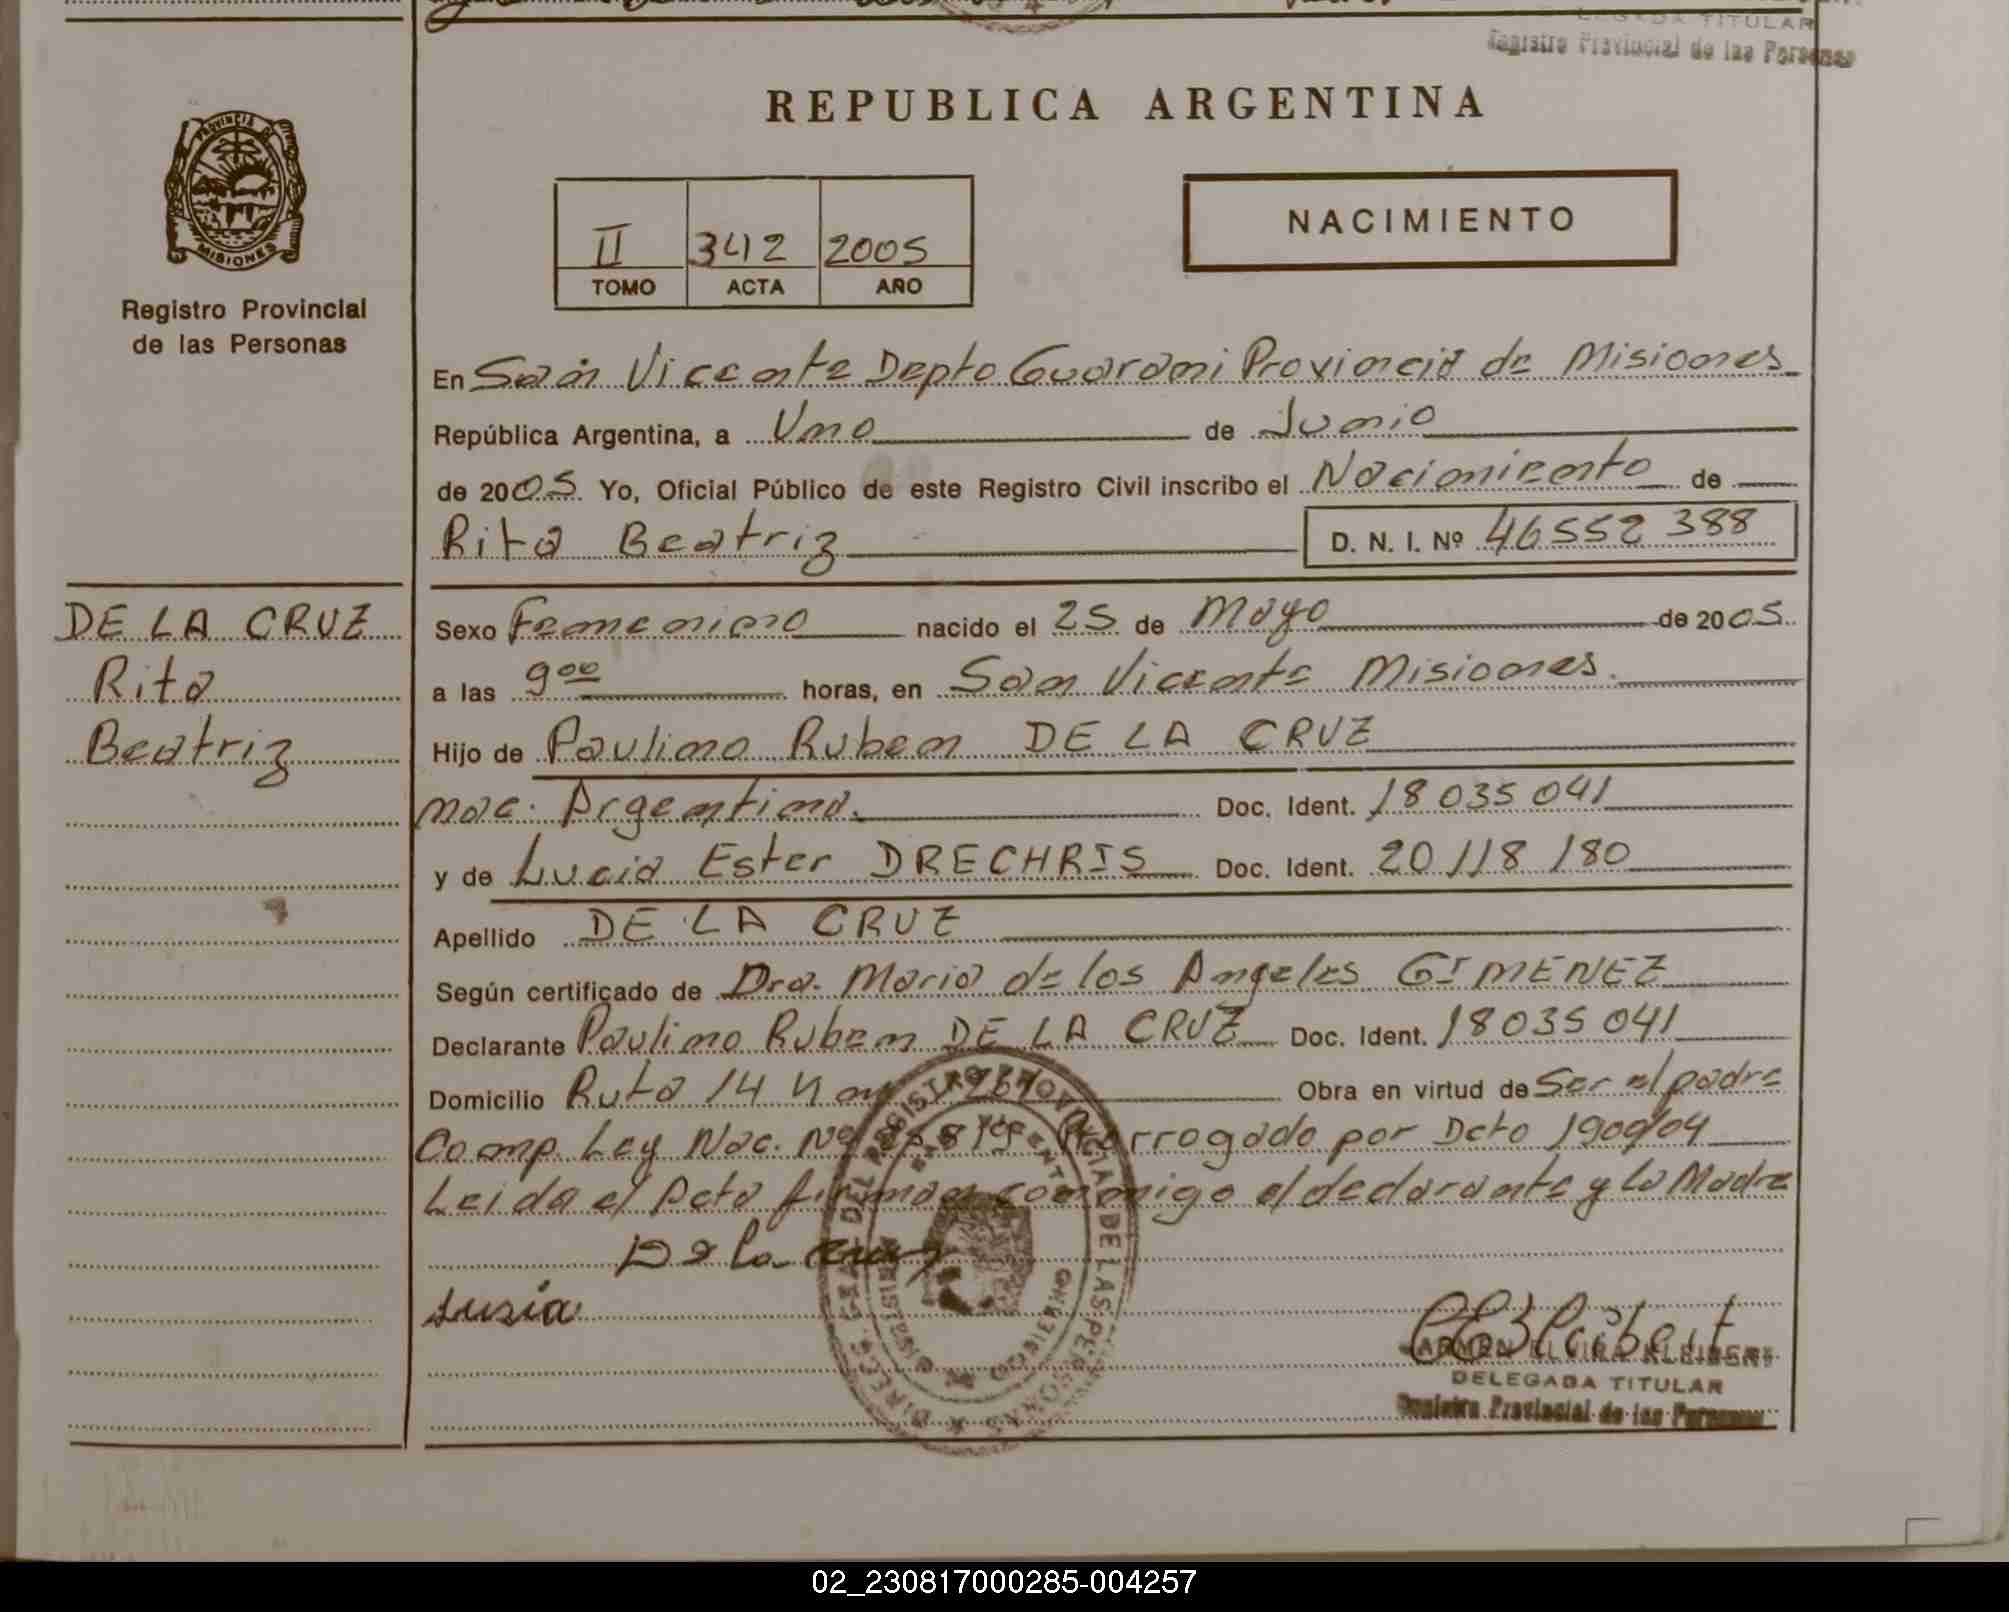 LEGADA TITULAR
Registro Provincial de las Personas
REPUBLICA ARGENTINA
PROVINCIA DE
MISIONES
Registro Provincial
de las Personas
II 342 2005
TOMO ACTA AÑO
NACIMIENTO
En San Vicente Depto Guarani Provincia de Misiones
República Argentina, a Uno de Junio
de 2005 Yo, Oficial Público de este Registro Civil inscribo el Nacimiento de
Rita Beatriz D. N. I. Nº 46552 388
DE LA CRUZ
Rita
Beatriz
Sexo Femenino nacido el 25 de Mayo de 2005
a las 9 00 horas, en San Vicente Misiones.
Hijo de Paulino Ruben DE LA CRUZ
nac. Argentina. Doc. Ident. 18 035 041
y de Lucia Ester DRECHRIS Doc. Ident. 20 118 180
Apellido DE LA CRUZ
Según certificado de Dra. Maria de los Angeles GIMENEZ
Declarante Paulino Ruben DE LA CRUZ Doc. Ident. 18 035 041
Domicilio Ruta 14 Obra en virtud de Ser el padre
Comp. Ley Nac. Nº por Dcto 1909/04
Leida el Acta firman conmigo el declarante y la Madre
De la cruz
Lusia
CARMEN ELVIRA KLEIBERT
DELEGADA TITULAR
Registro Provincial de las Personas
02_230817000285-004257